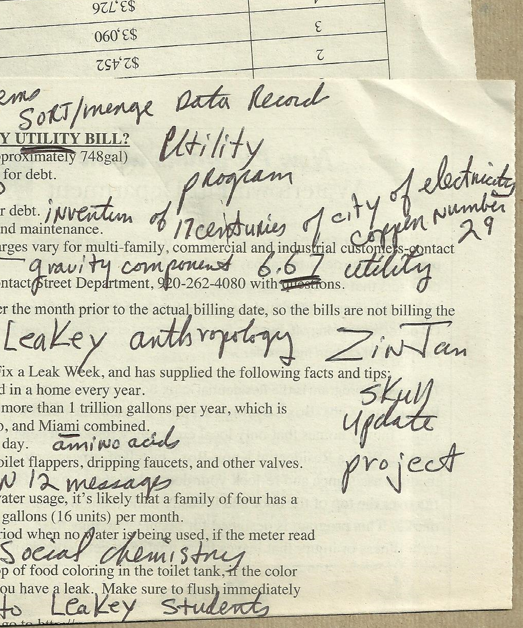 $3,726
3 $3,090
2 $2,452
ems
SORT/merge Data Record
Y UTILITY BILL?
Utility
pproximately 748gal)
for debt.
program
r debt. invention of 17 centuries of city of electricity
nd maintenance.
copper number
29
arges vary for multi-family, commercial and industrial customers-contact
gravity component 6.67 utility
ontact Street Department, 920-262-4080 with questions.
er the month prior to the actual billing date, so the bills are not billing the
Leakey anthropology ZinTan
Fix a Leak Week, and has supplied the following facts and tips:
d in a home every year.
skull
more than 1 trillion gallons per year, which is
update
o, and Miami combined.
day. amino acids
oilet flappers, dripping faucets, and other valves.
project
N 12 messages
vater usage, it's likely that a family of four has a
gallons (16 units) per month.
riod when no water is being used, if the meter read
Social chemistry
op of food coloring in the toilet tank, if the color
ou have a leak. Make sure to flush immediately
to Leakey Students